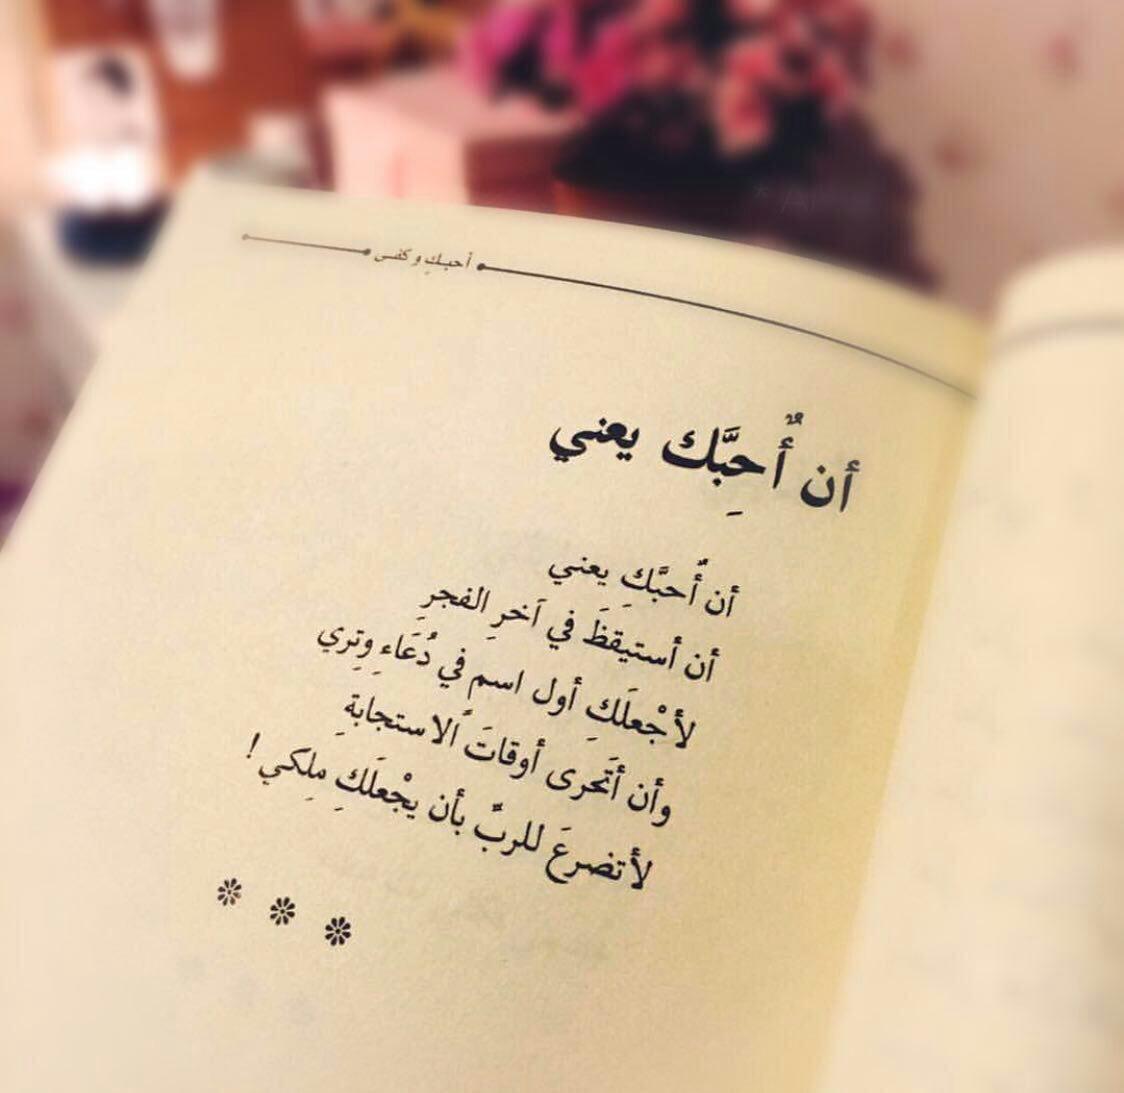 أحبكِ وكفى
أن أُحِبَّك يعني
أن أُحبَّكِ يعني
أن أستيقظَ في آخرِ الفجرِ
لأجْعلَكِ أول اسم في دُعَاءِ وِتِري
وأن أتَحرى أوقاتَ الاستجابةِ
لأتضرعَ للربِّ بأن يجْعلَكِ مِلِكي !